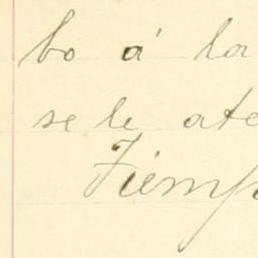 bo á la
se le ate
Tiemp